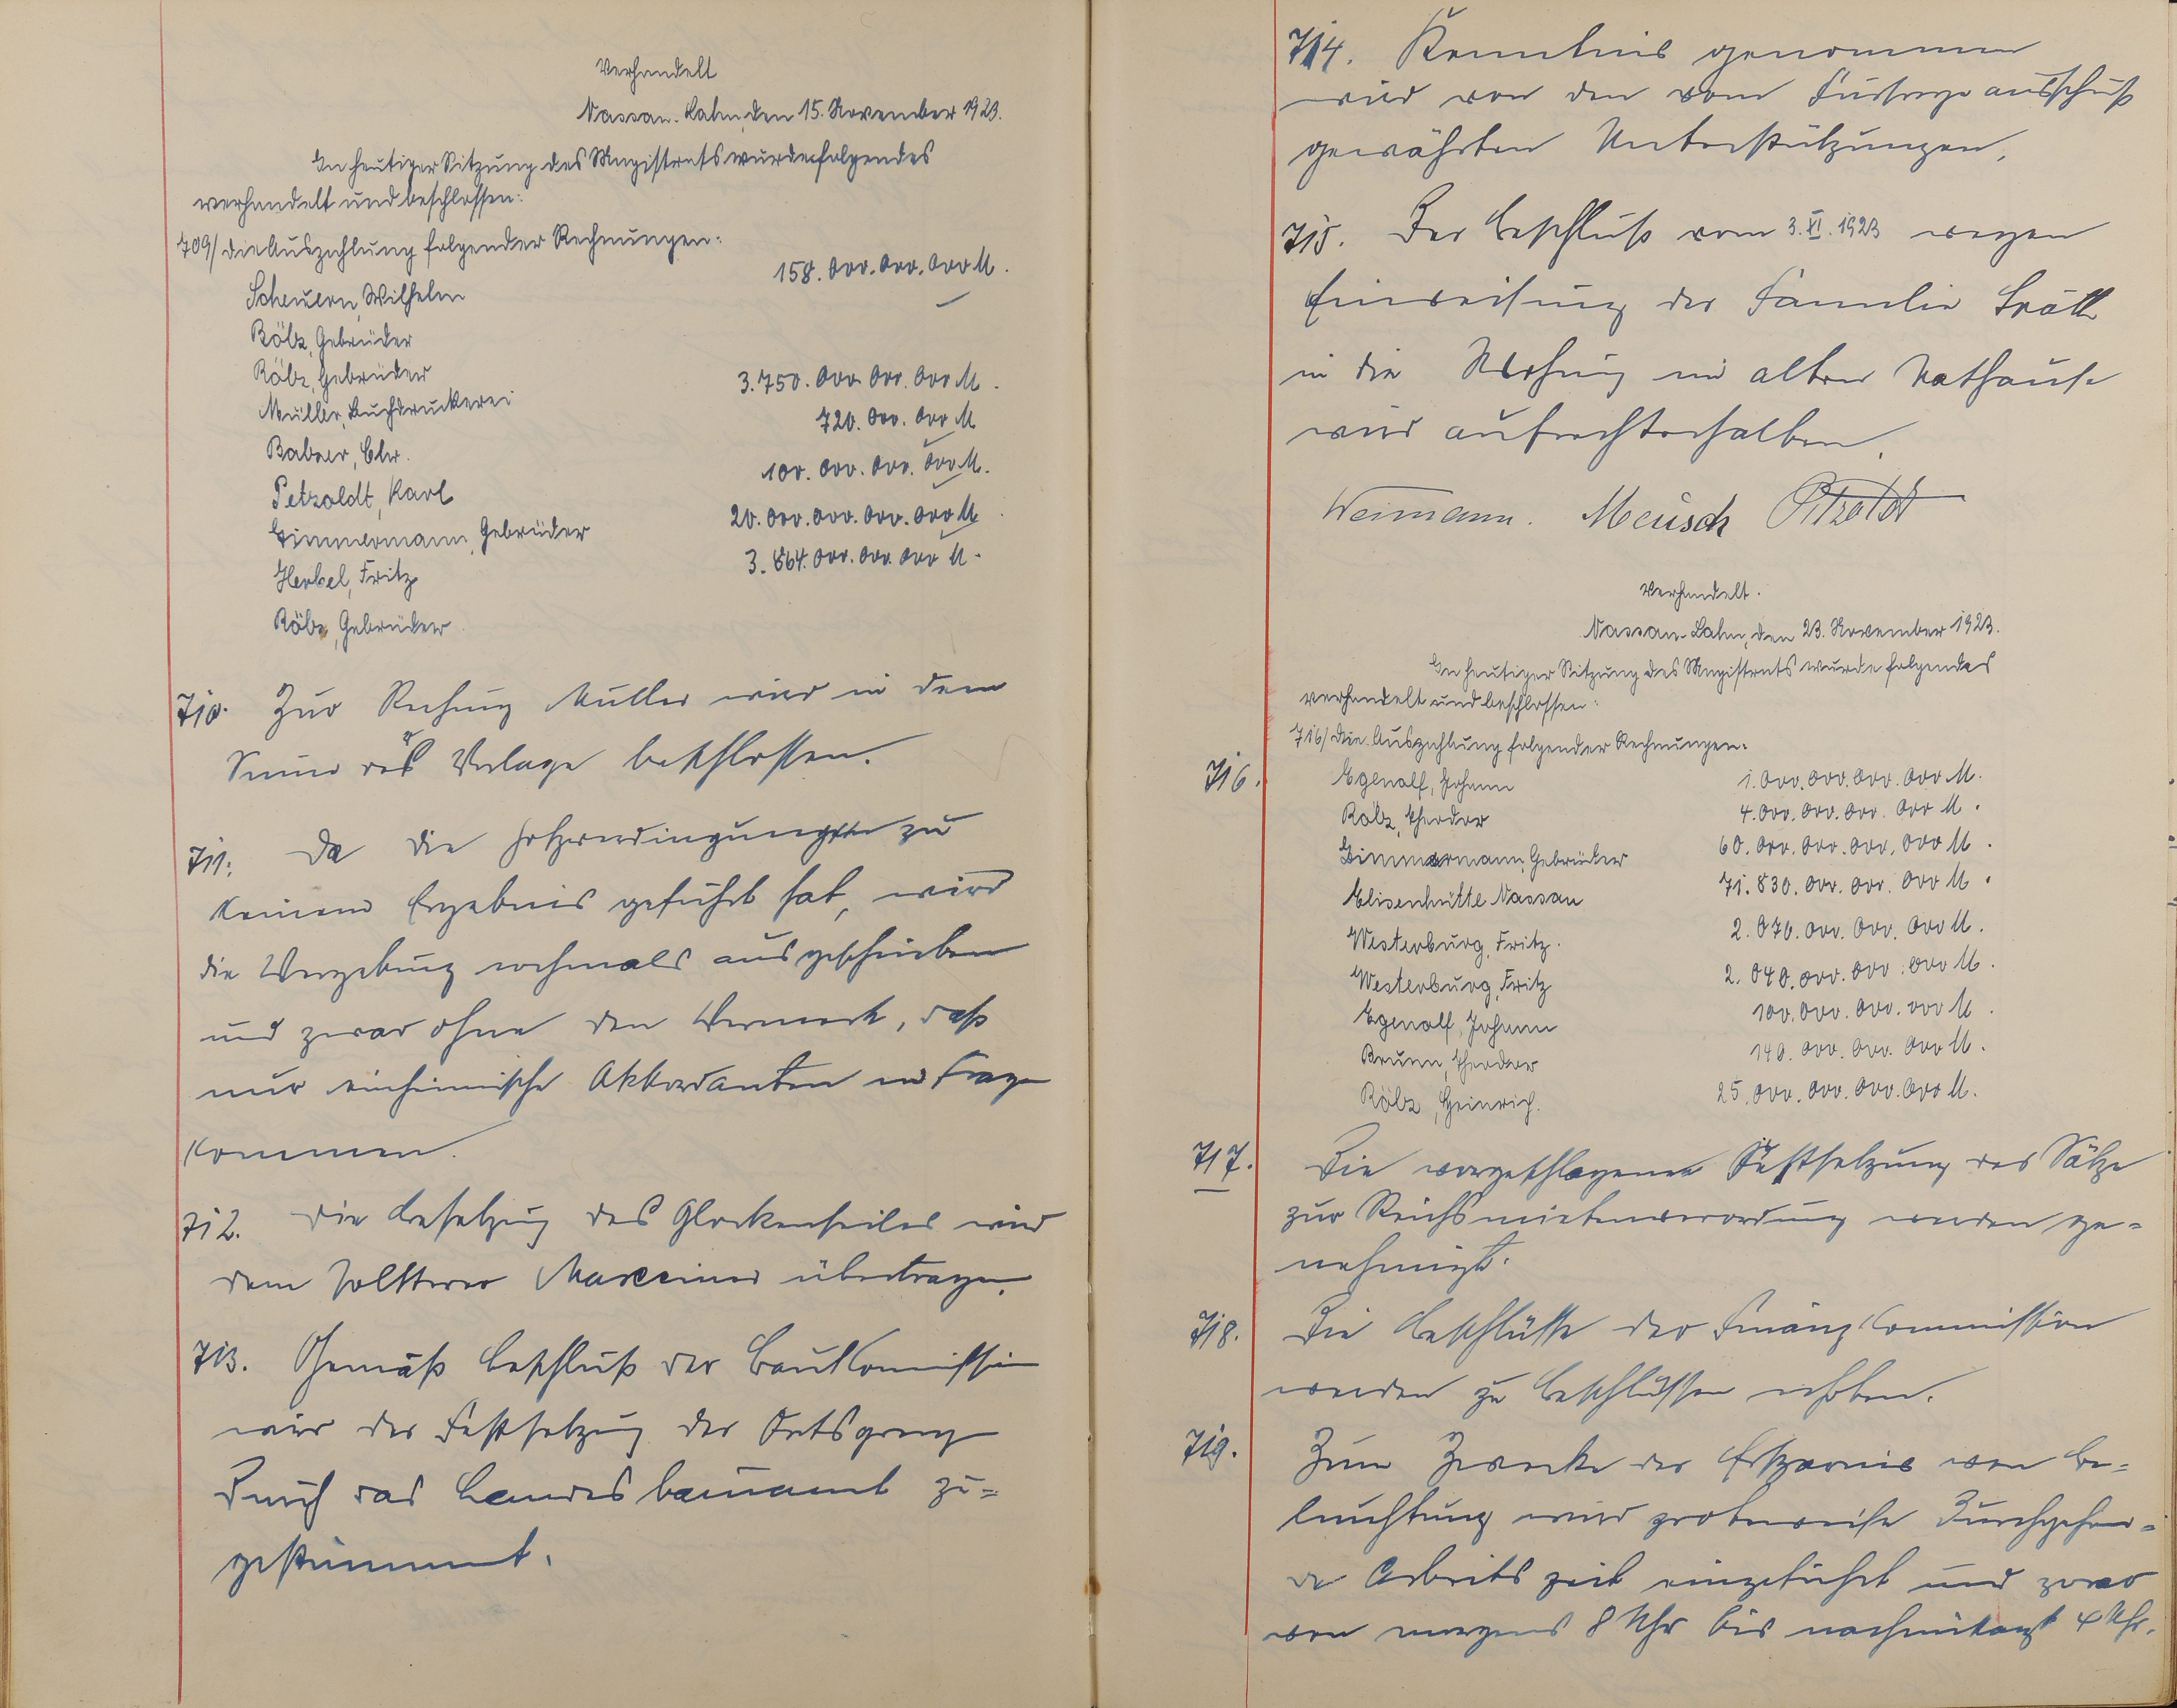 Verhandelt
Nassau-Lahn, den 15. November 1923.
In heutiger Sitzung des Magistrats wurde folgendes
verhandelt und beschlossen:
709/ die Auszahlung folgender Rechnungen:
Scheuern, Wilhelm 158.000.000.000 M.
Rölz, Gebrüder
Rölz, Gebrüder 3.750.000.000.000 M.
Müller, Buchdruckerei 720.000.000 M
Babner, Chr. 100.000.000.000 M.
Petzoldt, Karl 20.000.000.000.000 M
Zimmermann, Gebrüder 3.864.000.000.000 M.
Herbel, Fritz
Rölz, Gebrüder.
710. Zur Rechnung Müller wird in dem
Sinne der Vorlage beschlossen.
711. Da die Holzverdingung zu
keinem Ergebnis geführt hat, wird
die Vergebung nochmals ausgeschrieben
und zwar ohne den Vermerk, daß
nur einheimische Akkordanten in Frage
kommen.
712. Die Besetzung des Glockenseiles wird
dem Marxeiner übertragen.
713. Gemäß Beschluß der Baukommission
wird der Festsetzung der Ortsgrenze
durch das Landesbauamt zu=
gestimmt.
714. Kenntnis genommen
wird von den vom Fürsorgeausschuß
gewährten Unterstützungen.
715. Der Beschluß vom 3. XI. 1923 wegen
Einweisung der Familie
in die Wohnung im alten Rathause
wird aufrechterhalten.
Weimann. Meusch Petzoldt
Verhandelt.
Nassau-Lahn, den 23. November 1923.
In heutiger Sitzung des Magistrats wurde folgendes
verhandelt und beschlossen:
716/ die Auszahlung folgender Rechnungen:
716. Egenolf, Johann 1.000.000.000.000 M.
Rölz, Theodor 4.000.000.000.000 M.
Zimmermann, Gebrüder 60.000.000.000.000 M.
Elisenhütte Nassau 71.830.000.000.000 M.
Westerburg, Fritz. 2.070.000.000.000 M.
Westerburg, Fritz 2.040.000.000.000 M.
Egenolf, Johann 100.000.000.000 M.
Bruun, Theodor 140.000.000.000 M.
Rölz, Heinrich. 25.000.000.000.000 M.
717. Die vorgeschlagenen Festsetzung der Sätze
zur Reichsmietenverordnung werden ge=
nehmigt.
718. Die Beschlüsse der Finanzkommission
werden zu Beschlüssen erhoben.
719. Zum Zwecke der Ersparnis von Be=
leuchtung wird probeweise durchgehen=
de Arbeitszeit eingeführt und zwar
von morgens 8 Uhr bis nachmittags 4 Uhr.